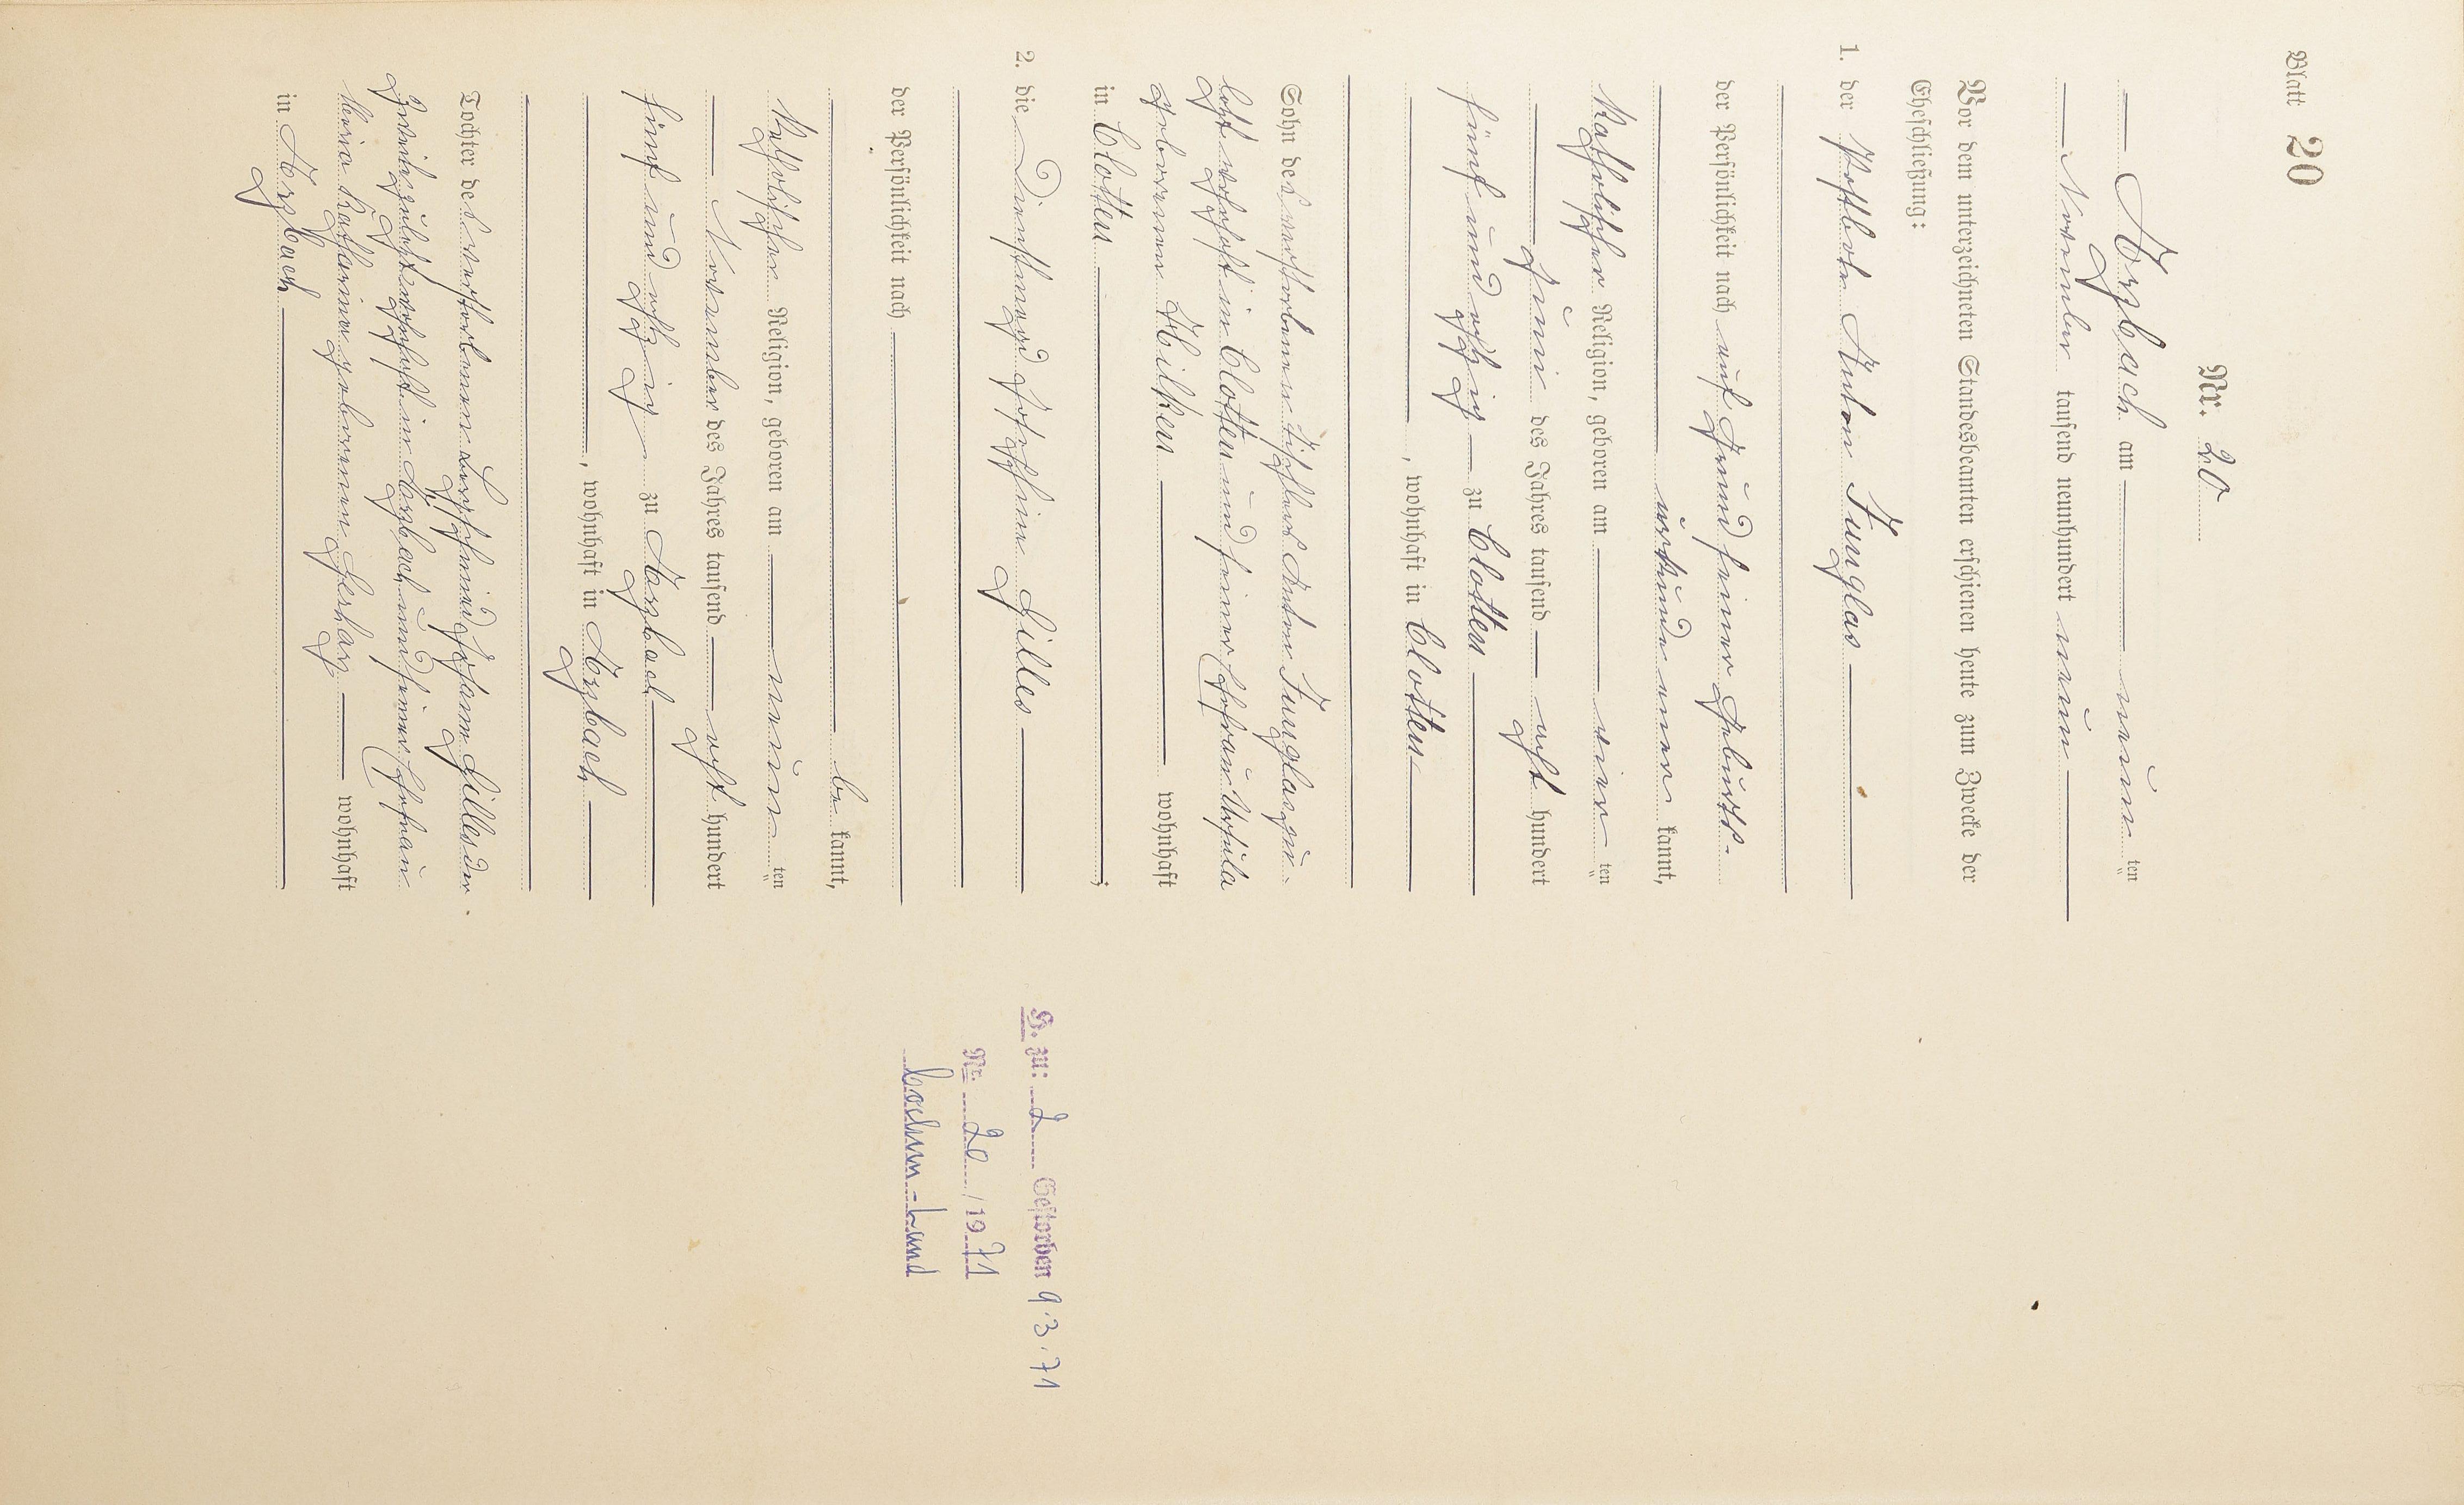 Blatt 20
Nr. 20
Arzbach am neun ten
November tausend neunhundert neun
Vor dem unterzeichneten Standesbeamten erschienen heute zum Zwecke der
Eheschließung:
1. der Postbote Anton Junglas
der Persönlichkeit nach auf Grund seiner Geburts-
urkunde aner kannt,
katholischer Religion, geboren am vier ten
Juni des Jahres tausend acht hundert
fünf und achtzig zu Clotten
, wohnhaft in Clotten
Sohn des verstorbenen Anton Junglas zu-
letzt wohnhaft in Clotten und seiner Ehefrau Ursula
geborenen Hilken wohnhaft
in Clotten ;
2. die Dienstmagd Josephine Gilles
der Persönlichkeit nach
be kannt,
katholischer Religion, geboren am neun ten
November des Jahres tausend acht hundert
fünf und achtzig zu Arzbach
, wohnhaft in Arzbach
Tochter des verstorbenen Johann Gilles
zuletzt wohnhaft in Arzbach und seiner Ehefrau
Maria Katharina geborenen wohnhaft
in Arzbach
H. zu: 2 Gestorben 9.3.71
Nr. 20 / 1971
Cochem-Land